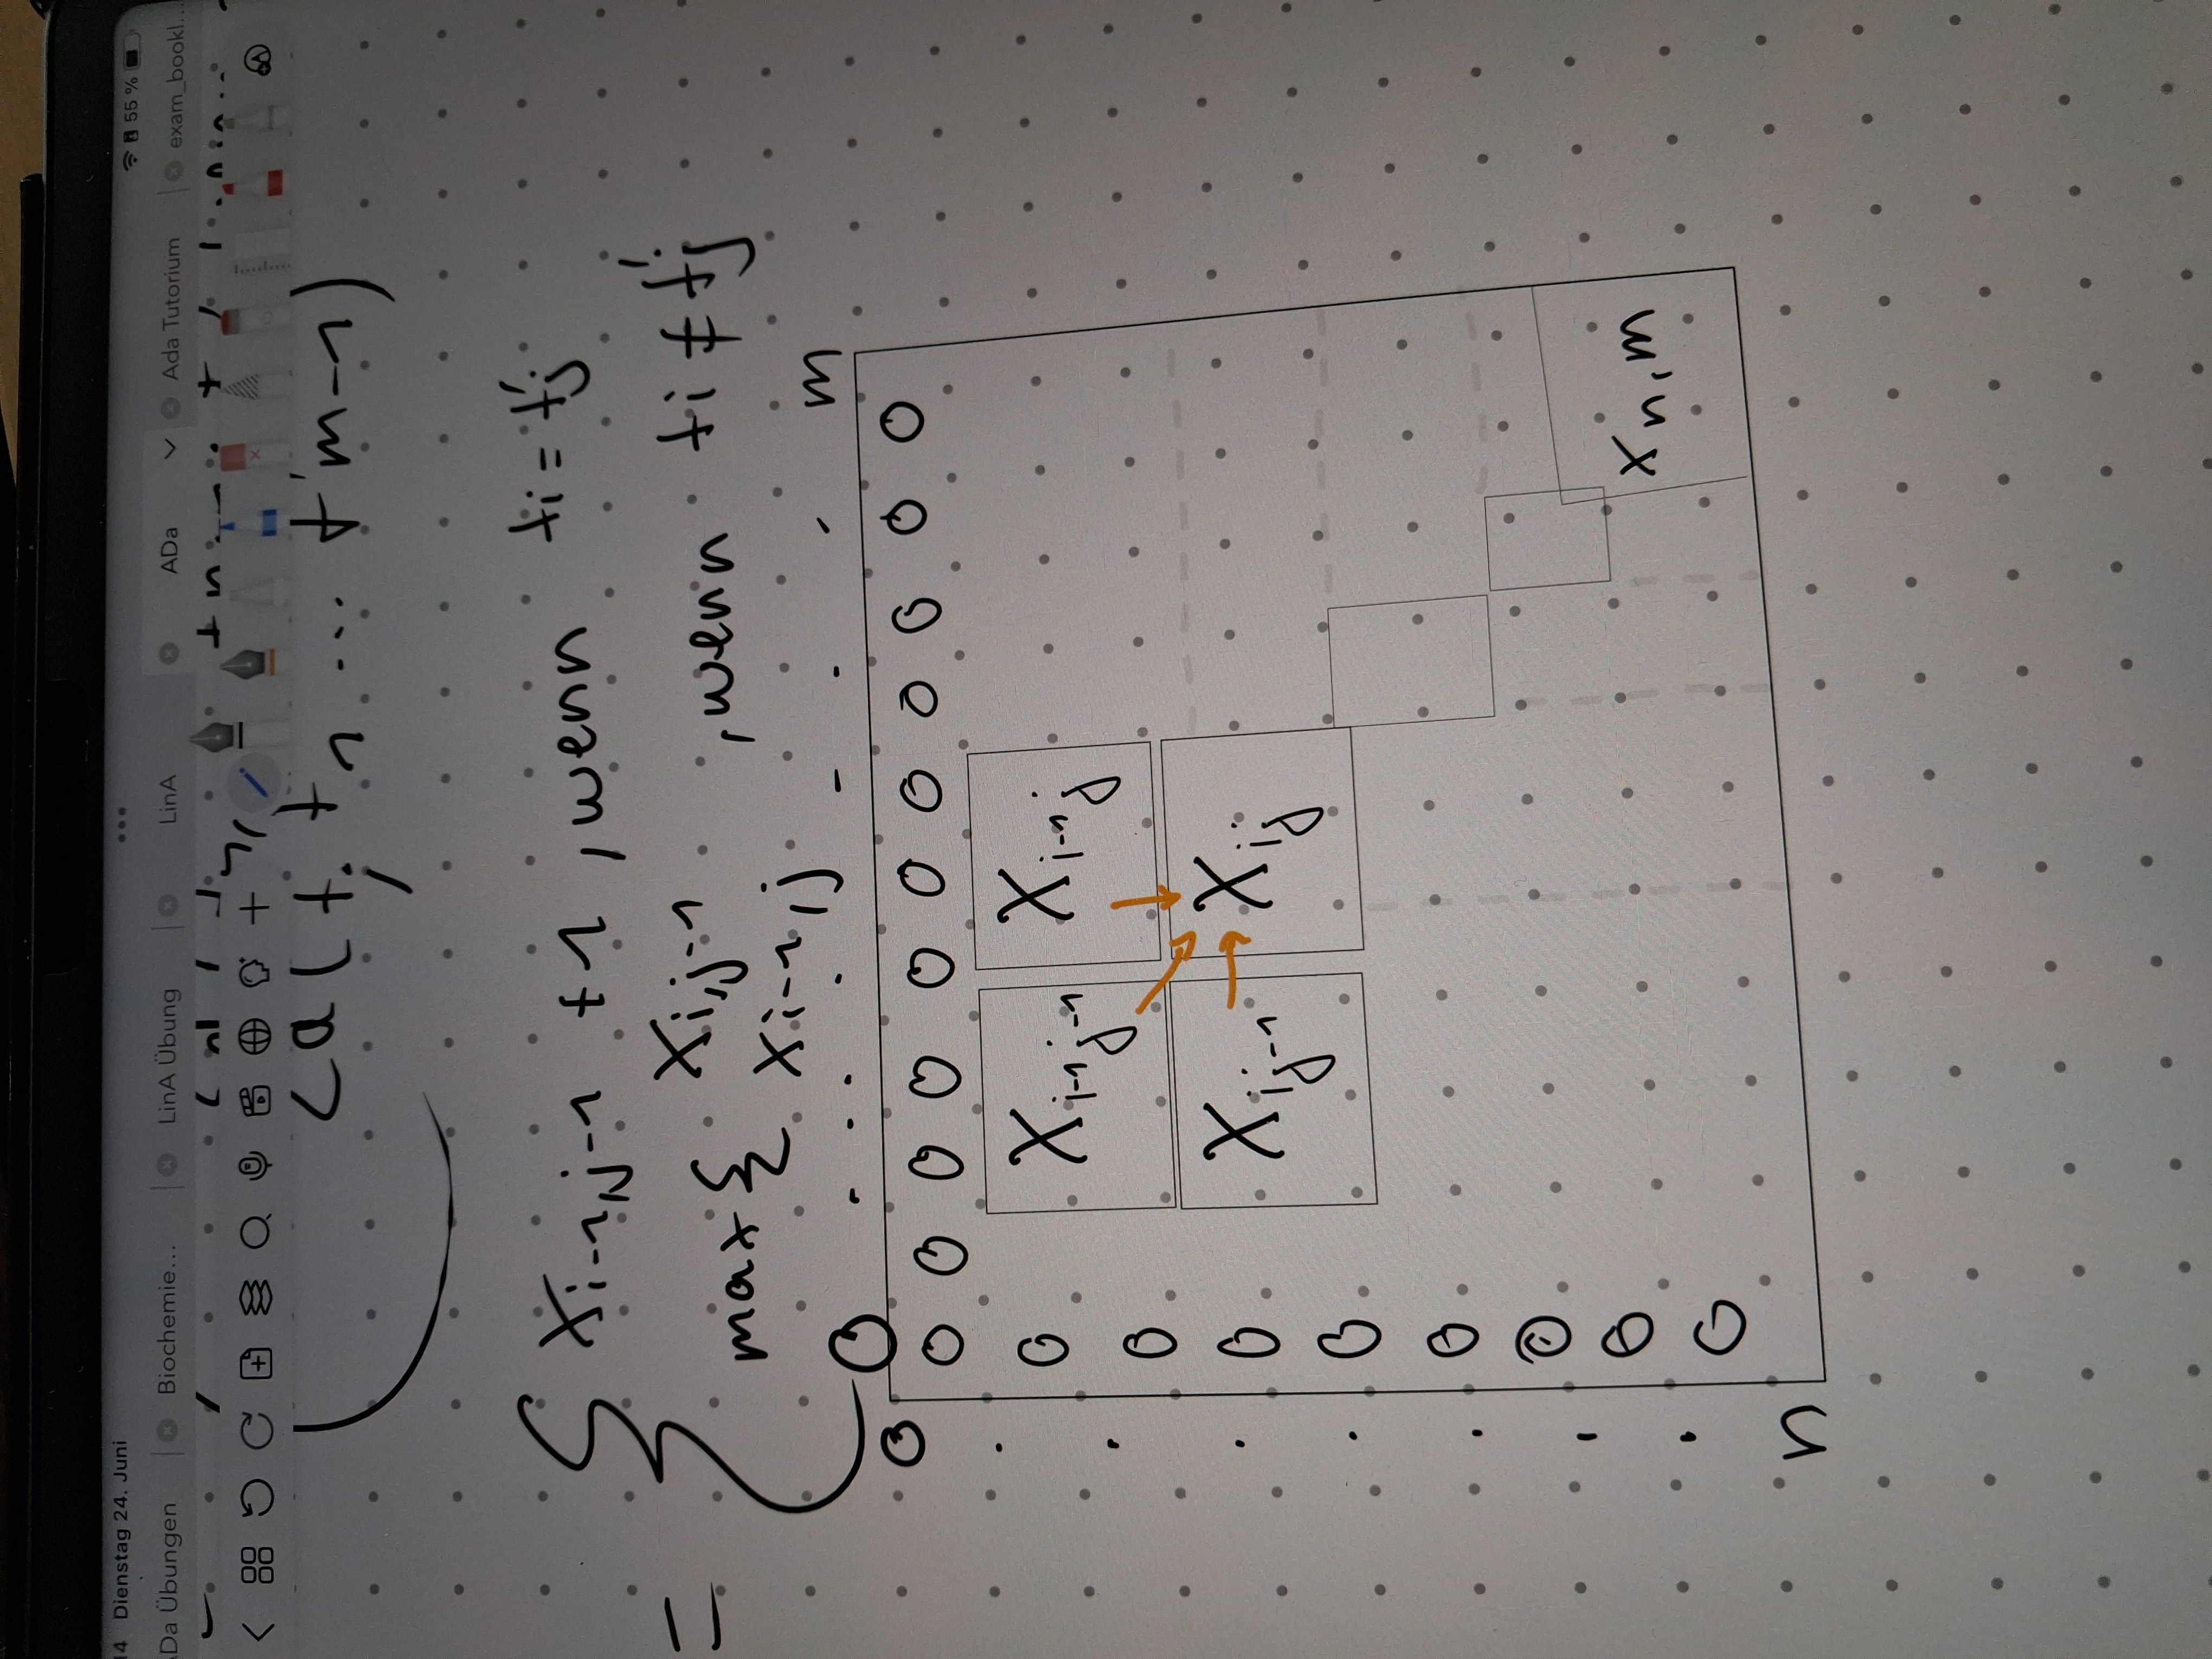 14 Dienstag 24. Juni
55 %
Da Übungen
Biochemie...
LinA Übung
LinA
ADa
Ada Tutorium
exam_bookl...
t, t1 ... t'm-1)
= { Xi-1,j-1 +1 , wenn ti = t'j
max { Xi,j-1 , wenn ti ≠ t'j
Xi-1,j
0 ... . - - . m
0
0 0 0 0 0 0 0 0 0 0 0
0
Xi-1j-1 Xi-1j
0
0
Xij-1 Xij
0
0
0
0
xn,m
0
n